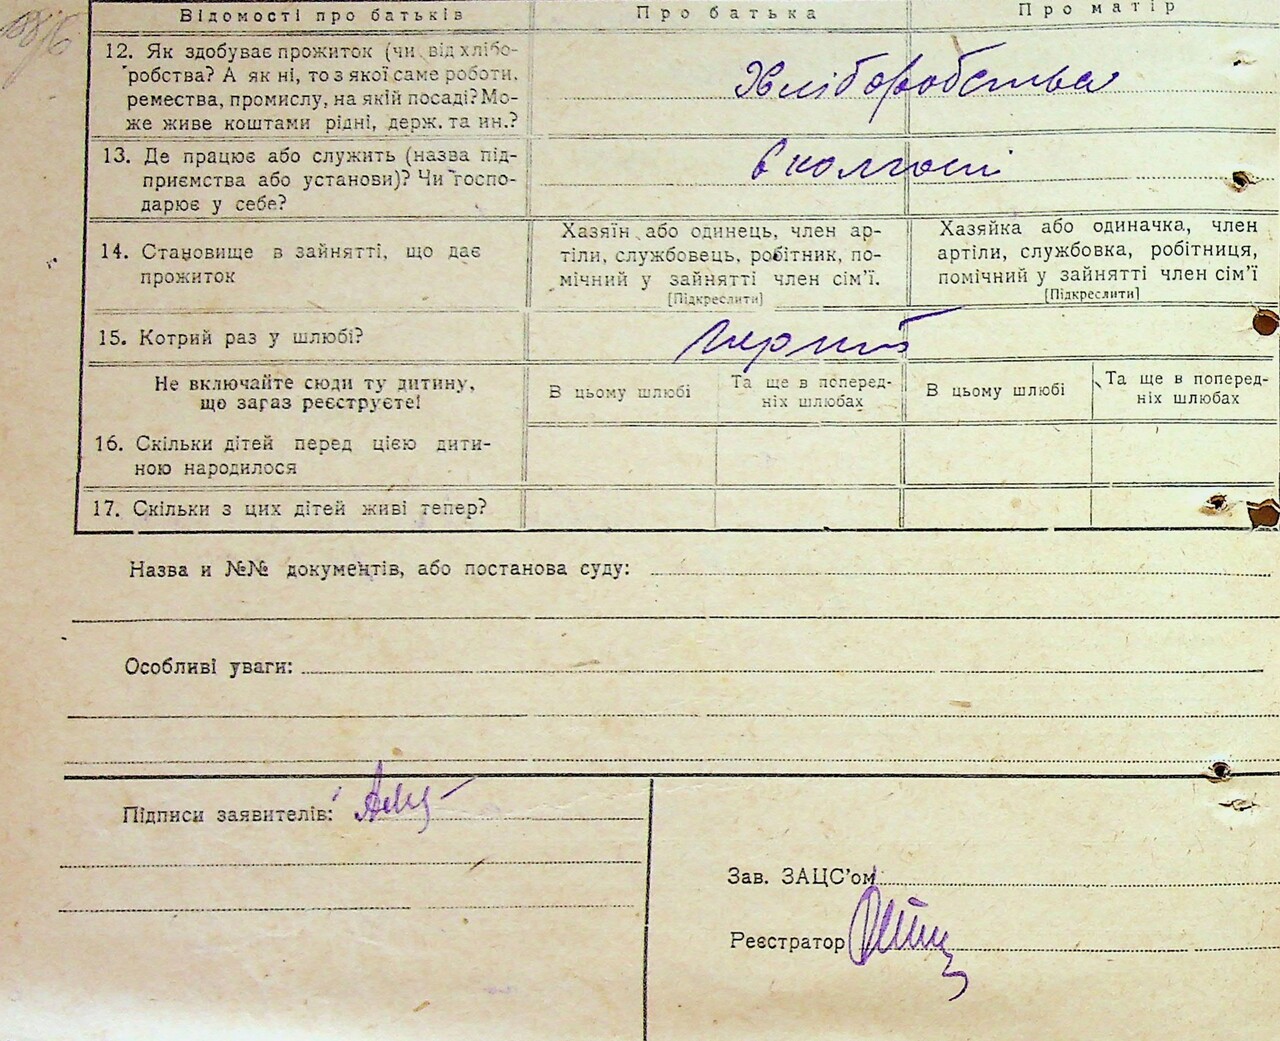 Відомості про батьків Про батька Про матір
12. Як здобуває прожиток (чи від хлібо-
робства? А як ні, то з якої саме роботи,
ремества, промислу, на якій посаді? Мо-
же живе коштами рідні, держ. та ин.?
Хліборобства
13. Де працює або служить (назва під-
приємства або установи)? Чи госпо-
дарює у себе?
в колгоспі
14. Становище в зайнятті, що дає
прожиток
Хазяїн або одинець, член ар-
тіли, службовець, робітник, по-
мічний у зайнятті член сім'ї.
[Підкреслити]
Хазяйка або одиначка, член
артіли, службовка, робітниця,
помічний у зайнятті член сім'ї
[Підкреслити]
15. Котрий раз у шлюбі?
Не включайте сюди ту дитину,
що зараз реєструєте!
В цьому шлюбі
Та ще в поперед-
ніх шлюбах
В цьому шлюбі
Та ще в поперед-
ніх шлюбах
16. Скільки дітей перед цією дити-
ною народилося
17. Скільки з цих дітей живі тепер?
Назва и №№ документів, або постанова суду:
Особливі уваги:
Підписи заявителів:
Зав. ЗАЦС'ом
Реєстратор